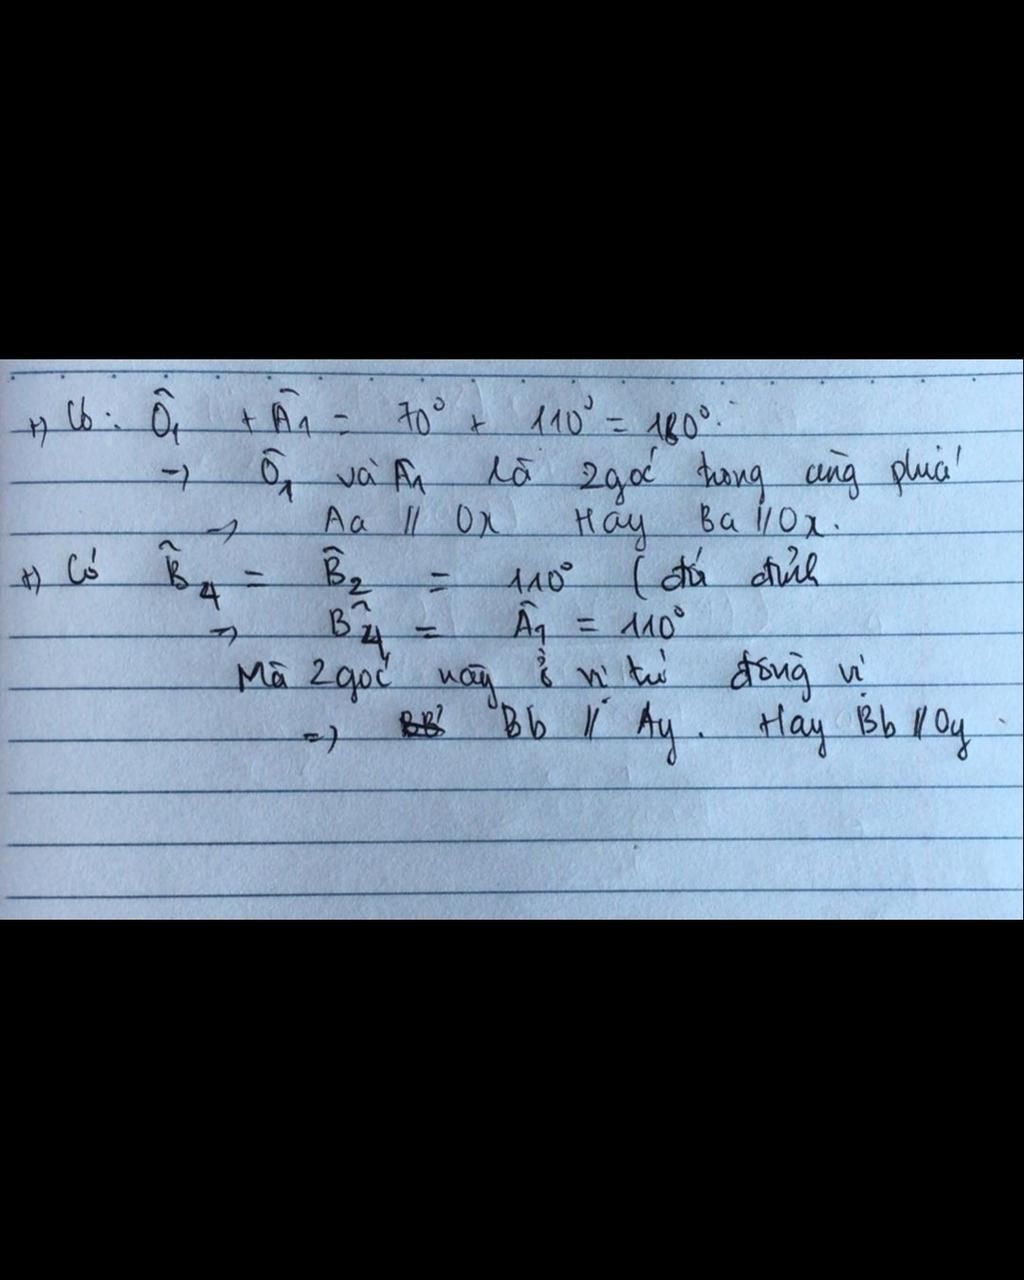 +) Có: Ô₁ + Â₁ = 70° + 110° = 180°.
→ Ô₁ và Â₁ là 2 góc trong cùng phía
→ Aa // Ox Hay Ba // Ox.
+) Có B̂₄ = B̂₂ = 110° (đối đỉnh
→ B̂₄ = Â₁ = 110°
Mà 2 góc này ở vị trí đồng vị
=> Bb // Ay. Hay Bb // Oy